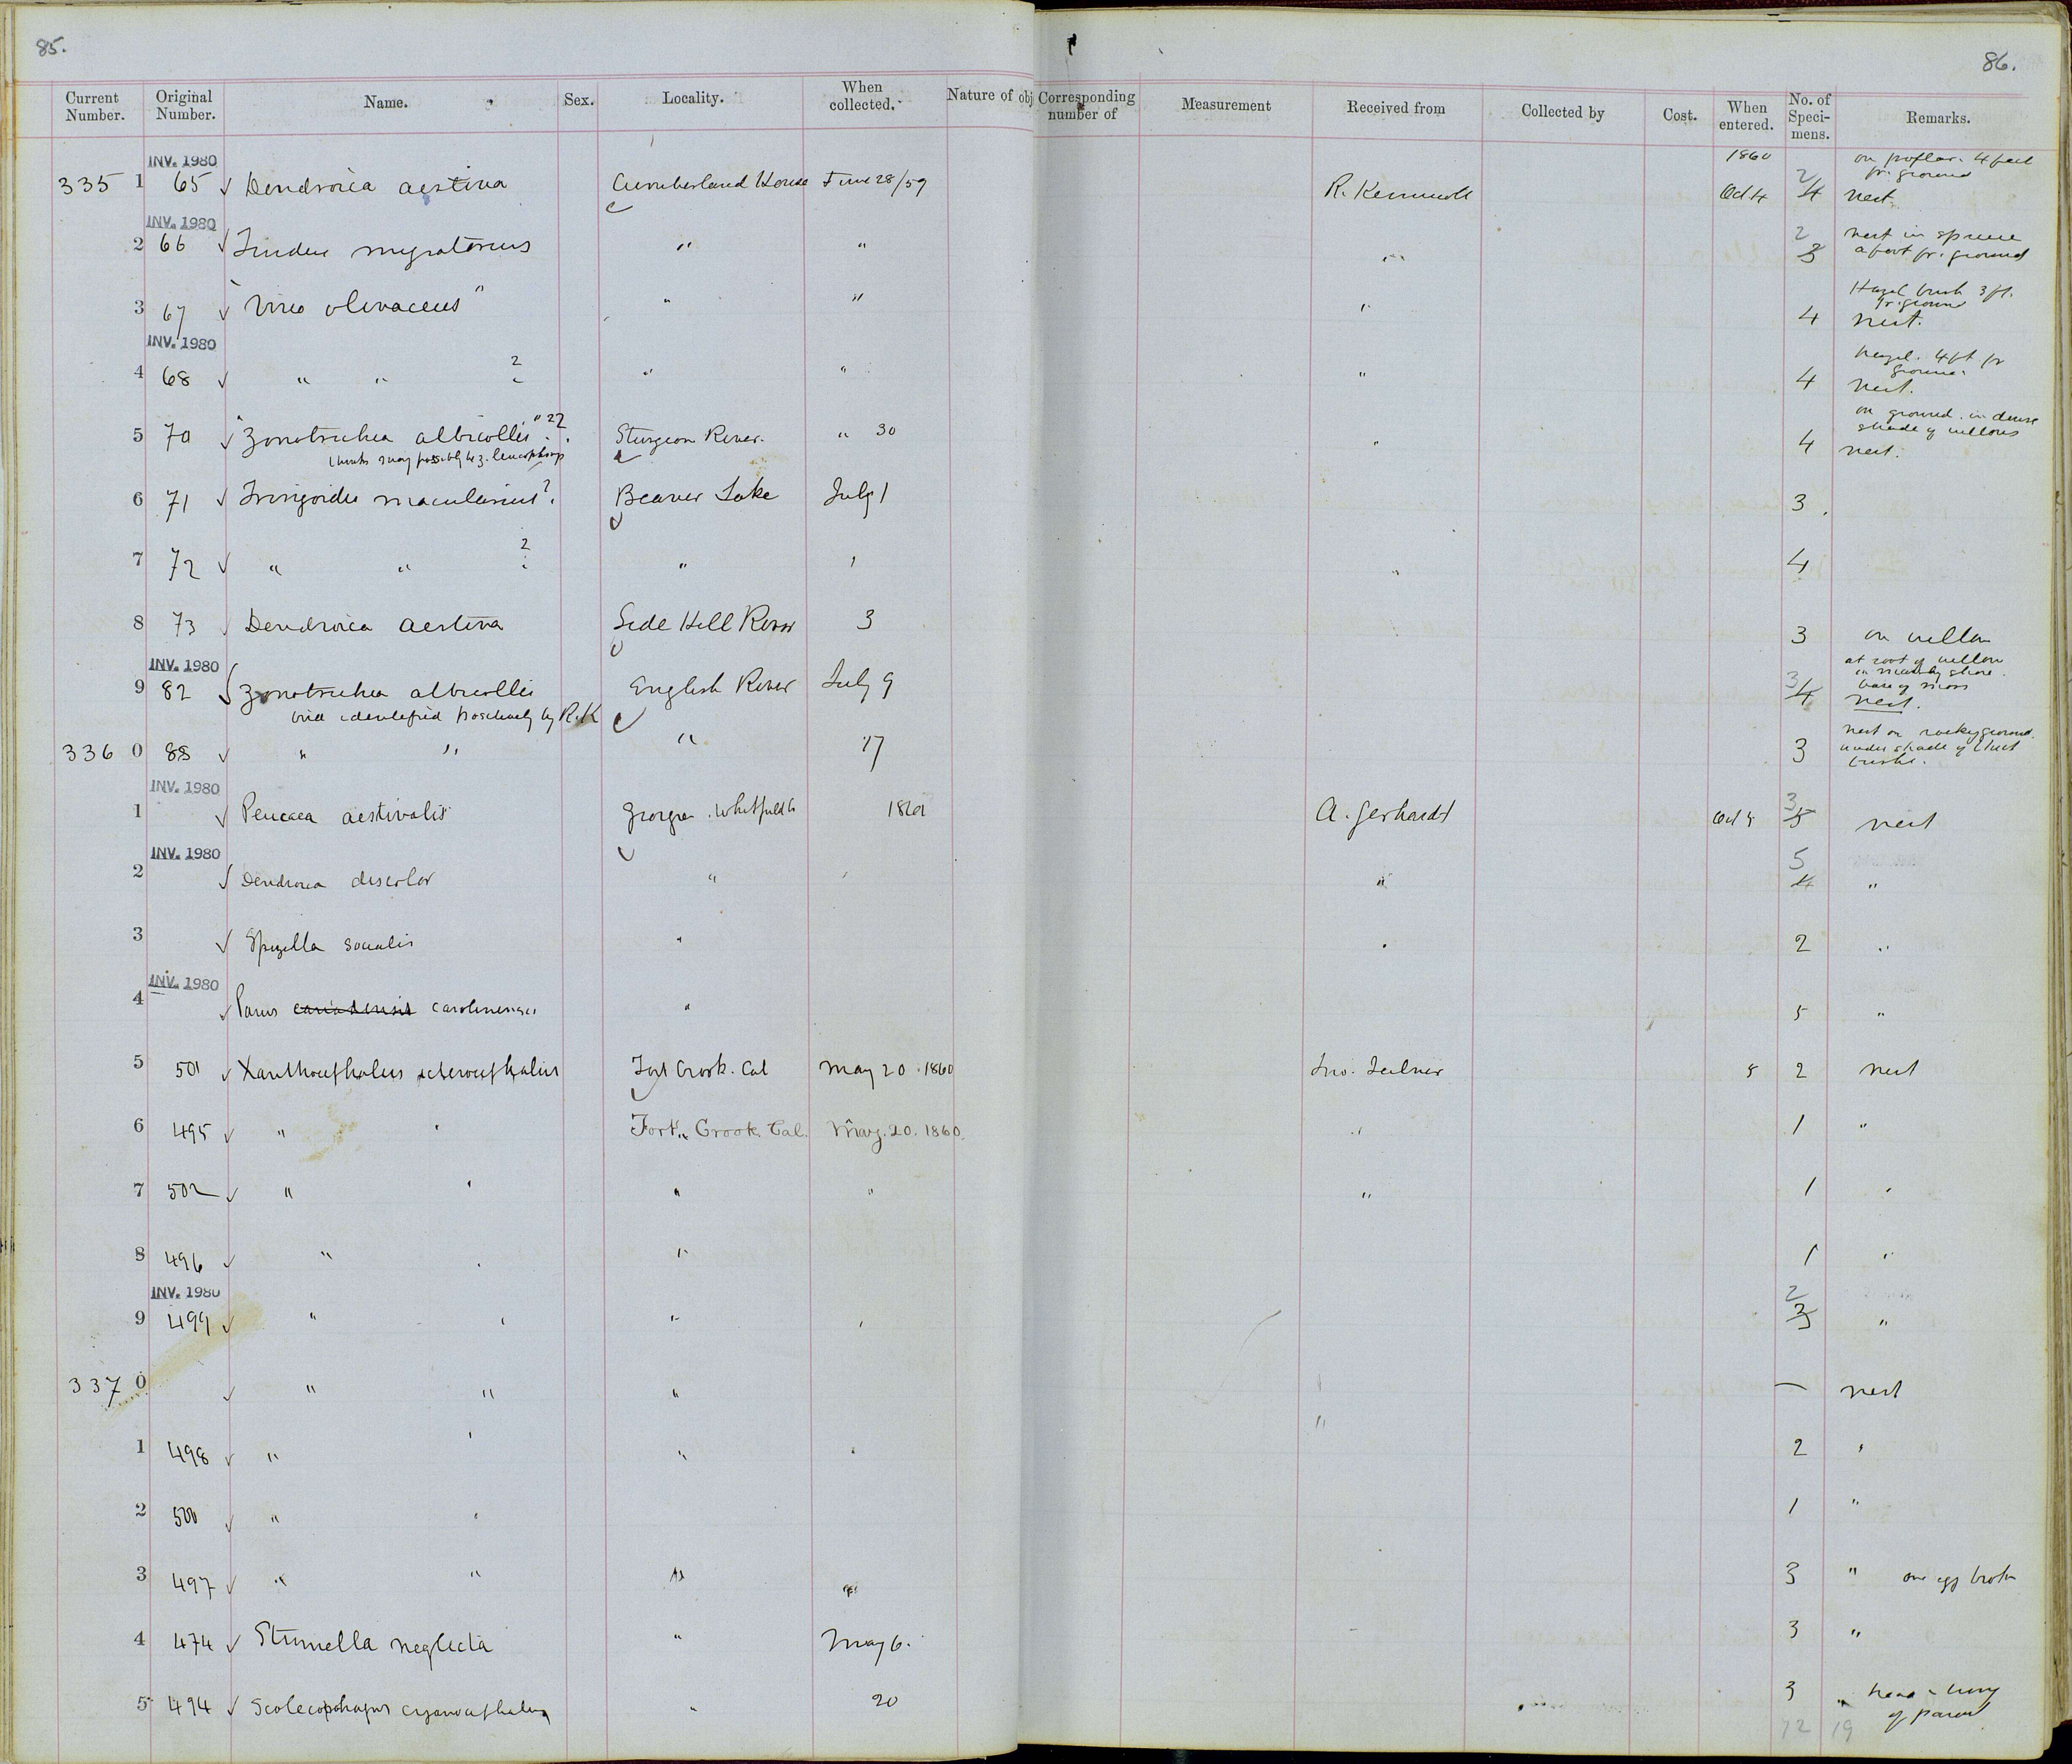 85.
86.
Current Number. Original Number. Name. Sex. Locality. When collected. Nature of obj Corresponding number of Measurement Received from Collected by Cost. When entered. No. of Specimens. Remarks.
INV. 1980 1860 on poplar. 4 feet
fr. ground
335 1 65 ✓ Dendroica aestiva Cumberland House June 28/59 R. Kennicott Oct 4 2 4 nest.
INV. 1980
2 66 ✓ Turdus migratorius " " " 2 3 nest in spruce
a foot fr. ground
3 67 ✓ "Vireo olivaceus" " " " 4 Hazel bush 3 ft.
fr. ground
nest.
INV. 1980
4 68 ✓ " " ? " " " 4 hazel. 4 ft fr
ground.
nest.
5 70 ✓ "Zonotrichia albicollis" ?? Sturgeon River. " 30 " 4 on ground. in dense
shade of willows
nest.
thinks may possibly be Z. leucophrys
6 71 ✓ Tringoides macularius? Beaver Lake July 1 3
7 72 ✓ " " ? " " " 4
8 73 ✓ Dendroica aestiva Side Hill River 3 3 on willow
INV. 1980
9 82 ✓ Zonotrichia albicollis English River July 9 3 4 at root of willow
base of moss
nest.
bird identified positively by R.K
336 0 88 ✓ " " " 17 3 nest on rocky ground
under shade of
bushes.
INV. 1980
1 ✓ Peucaea aestivalis Georgia. Whitfield Co 1860 A. Gerhardt Oct 5 3 5 nest
INV. 1980
2 ✓ Dendroica discolor " " 5 4 "
3 ✓ Spizella socialis " " 2 "
INV. 1980
4 ✓ Parus canadensis carolinensis " 5 "
5 501 ✓ Xanthocephalus icterocephalus Fort Crook. Cal May 20. 1860 Jno. Feilner 5 2 nest
6 495 ✓ " " Fort. Crook. Cal. May. 20. 1860. " 1 "
7 502 ✓ " " " " " 1 "
8 496 ✓ " " " 1 "
INV. 1980
9 499 ✓ " " " " 2 3 "
337 0 ✓ " " " — nest
1 498 ✓ " " " " " 2 "
2 500 ✓ " " 1 "
3 497 ✓ " " " " 3 " one egg broken
4 474 ✓ Sturnella neglecta " May 6. 3 "
5 494 ✓ Scolecophagus cyanocephalus " 20 3 "
of parent
72 19